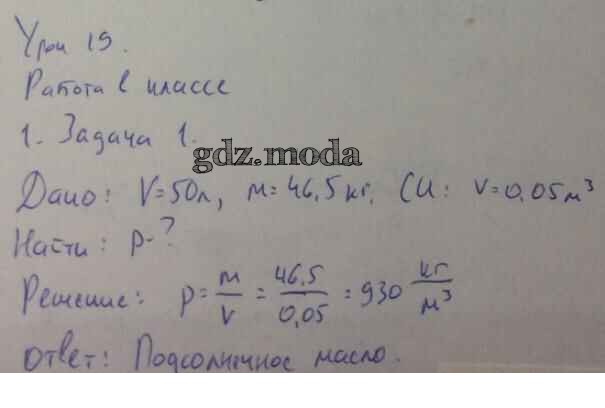 Урок 19.
Работа в классе
1. Задача 1.
gdz.moda
Дано: V=50л, m=46,5кг. СИ: V=0,05м³
Найти: p-?
Решение: p = m/V = 46,5/0,05 = 930 кг/м³
Ответ: Подсолнечное масло.